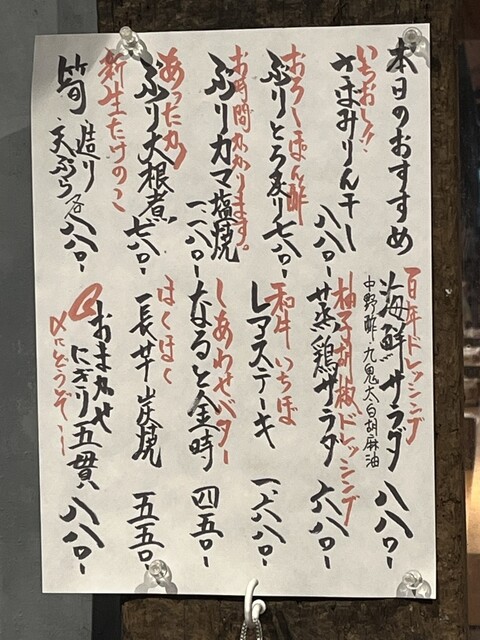 本日のおすすめ
いちおし!!
さばみりん干し 八八〇-
おろしぽん酢
ぶりとろ炙り 七八〇-
お時間かかります。
ぶりカマ塩焼 一、一八〇-
あったか
ぶり大根煮 七八〇-
新生たけのこ
筍 造り 天ぷら 各八八〇-
百年ドレッシング
海鮮サラダ 八八〇-
中野酢・九鬼太白胡麻油
柚子胡椒ドレッシング
蒸鶏サラダ 六八〇-
和牛いちぼ
レアステーキ 一、六八〇-
しあわせバター
なると金時 四五〇-
ほくほく
長芋炭焼 五五〇-
おまかせにぎり五貫 八八〇-
〆にどうぞ